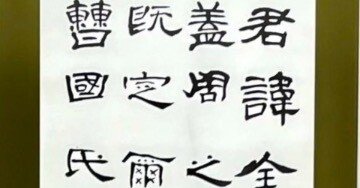 君諱全
蓋周之
既定爾
曹國氏